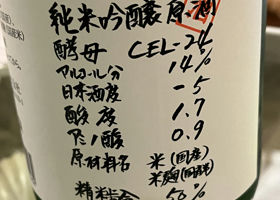 純米吟醸原酒
酵母 CEL-24
アルコール分 14%
日本酒度 -5
酸度 1.7
アミノ酸 0.9
原材料名 米(国産)
米麹(国産米)
精粕合 50%